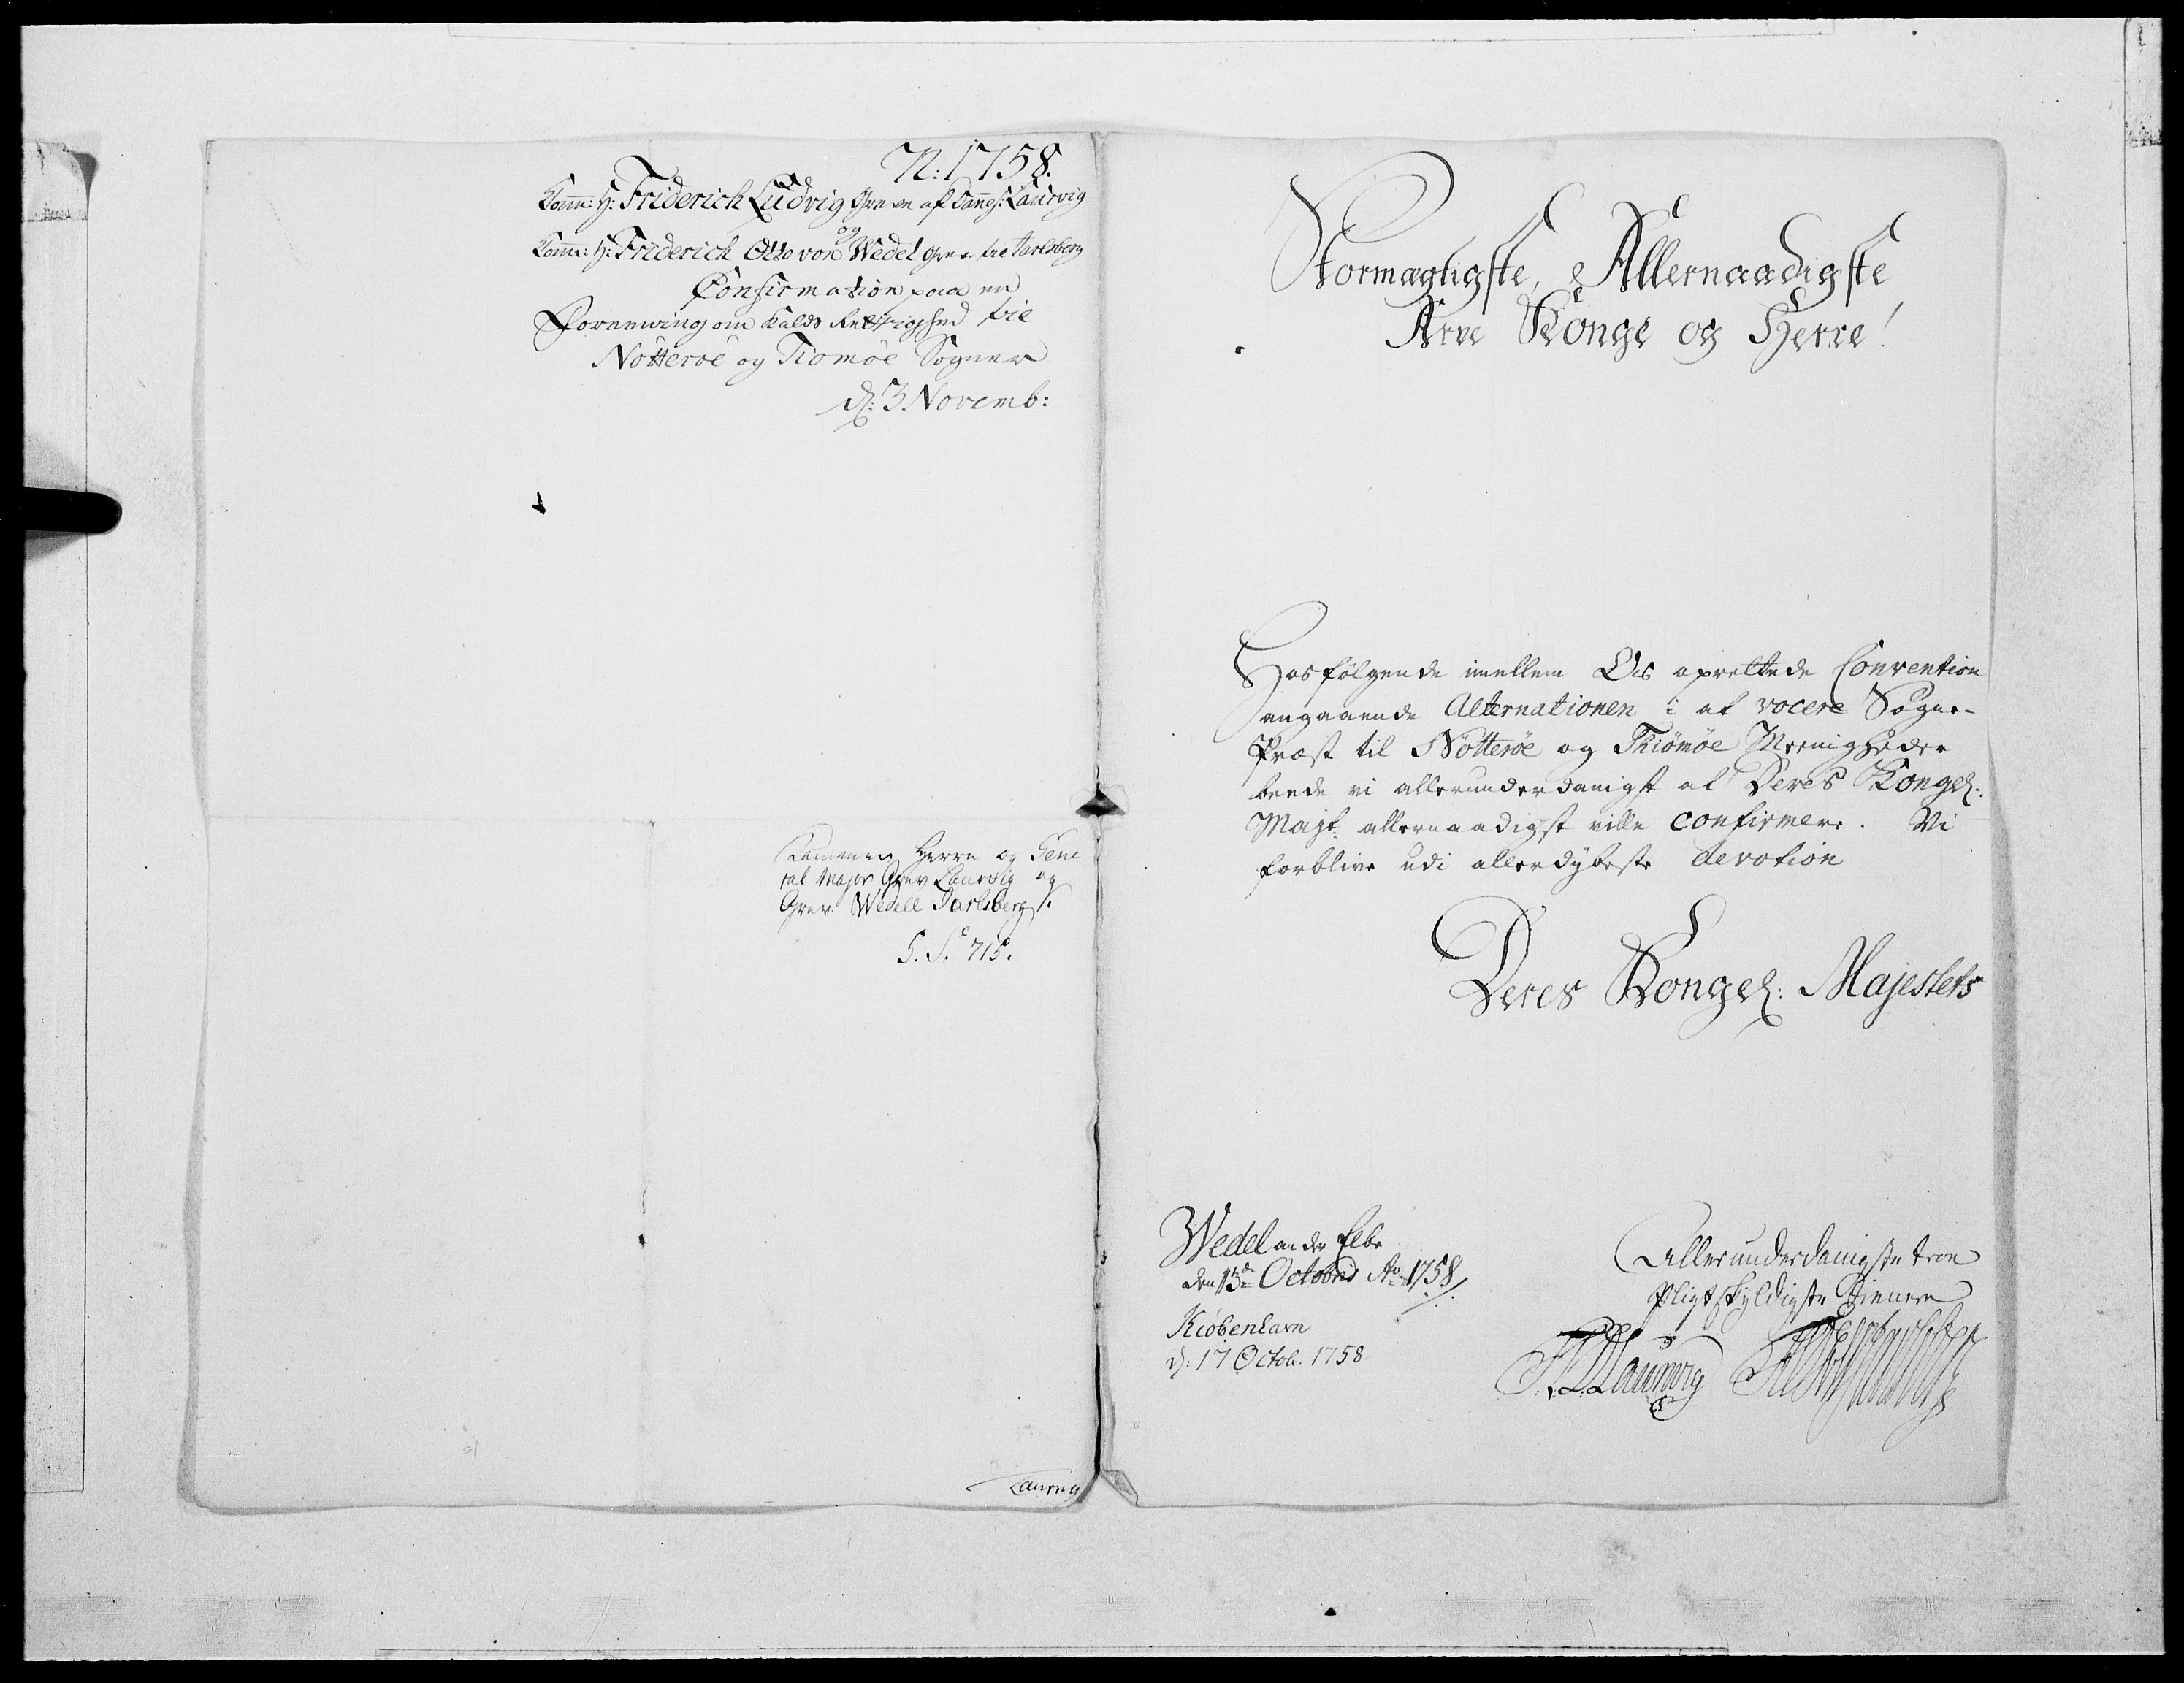 N: 1758.
Kamm: H: Friderich Ludvig Greve af Danneſ: Laurvig
og
Kamm: H: Friderich Otto von Wedel Greve til Jarlsberg
Confirmation paa en
Foreening om Kalds Rettighed til
Nötteröe og Tiömöe Sogner
d: 3. Novemb:
Kammer Herre og Gene
ral Major Grev Laurvig og
Grev Wedell Jarlsberg
S. S. 715.
Laurvig
Stormægtigste, Allernaadigste
Arve Konge og Herre!
Hosfölgende imellem Os oprettede Convention
angaaende Alternationen i at vocere Sogne-
Præst til Nötteröe og Thiömöe Meenigheder
beede vi allerunderdanigst at Deres Kongel:
Majt: allernaadigst ville confirmere. Vi
forblive udi allerdybeste devotion
Deres Kongel: Majestets
Wedel an der Elbe
den 13de Octobris Ao 1758
Kiöbenhavn
d: 17 Octob. 1758
Allerunderdanigste troe
Pligtskyldigste tienere
F L Laurwig